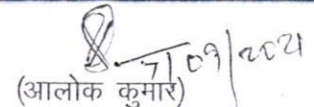 7/09/2021
(आलोक कुमार)